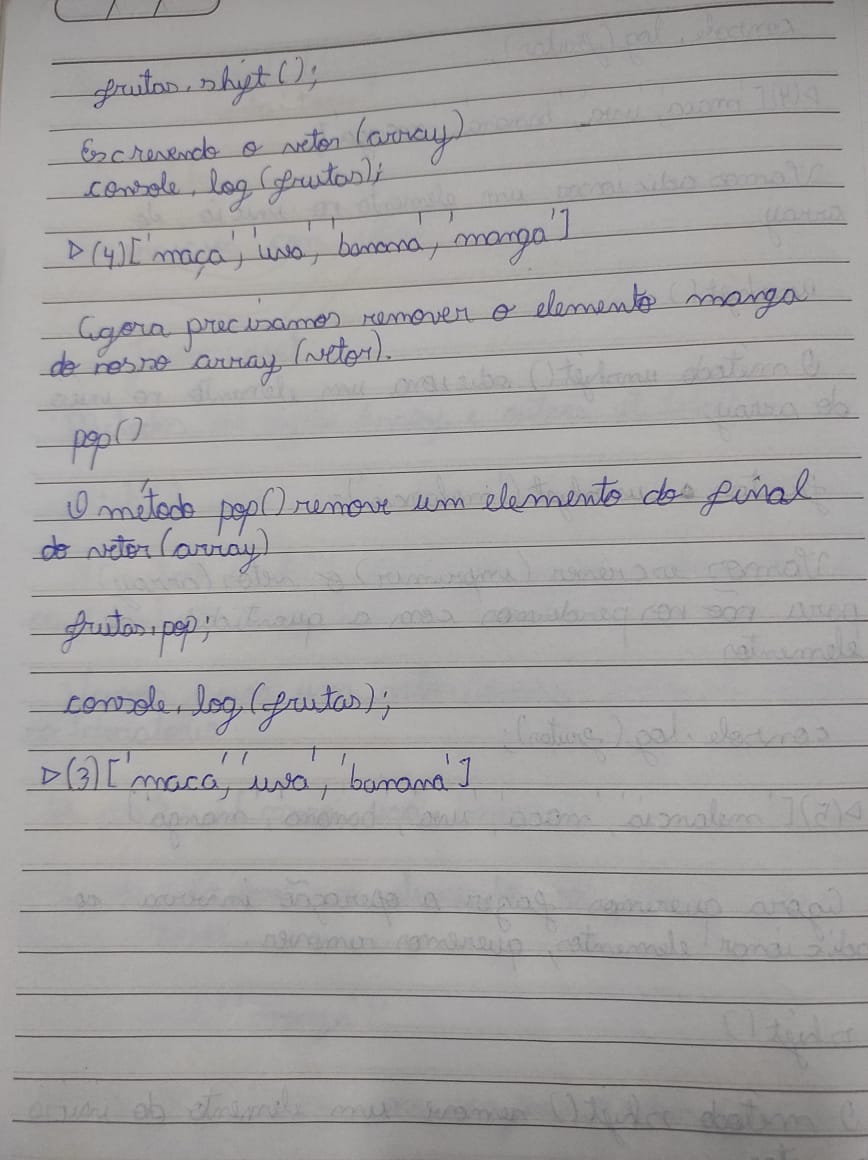 frutas.shift();
Escrevendo o vetor (array)
console.log(frutas);
▷(4)['maça', 'uva', 'banana', 'manga']
Agora precisamos remover o elemento manga
do nosso array (vetor).
pop()
O método pop() remove um elemento do final
do vetor (array)
frutas.pop;
console.log(frutas);
▷(3)['maca', 'uva', 'banana']